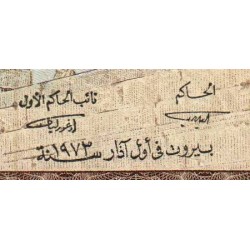 الحاكم
نائب الحاكم الأول
بيروت في أول آذار سنة ١٩٧٣